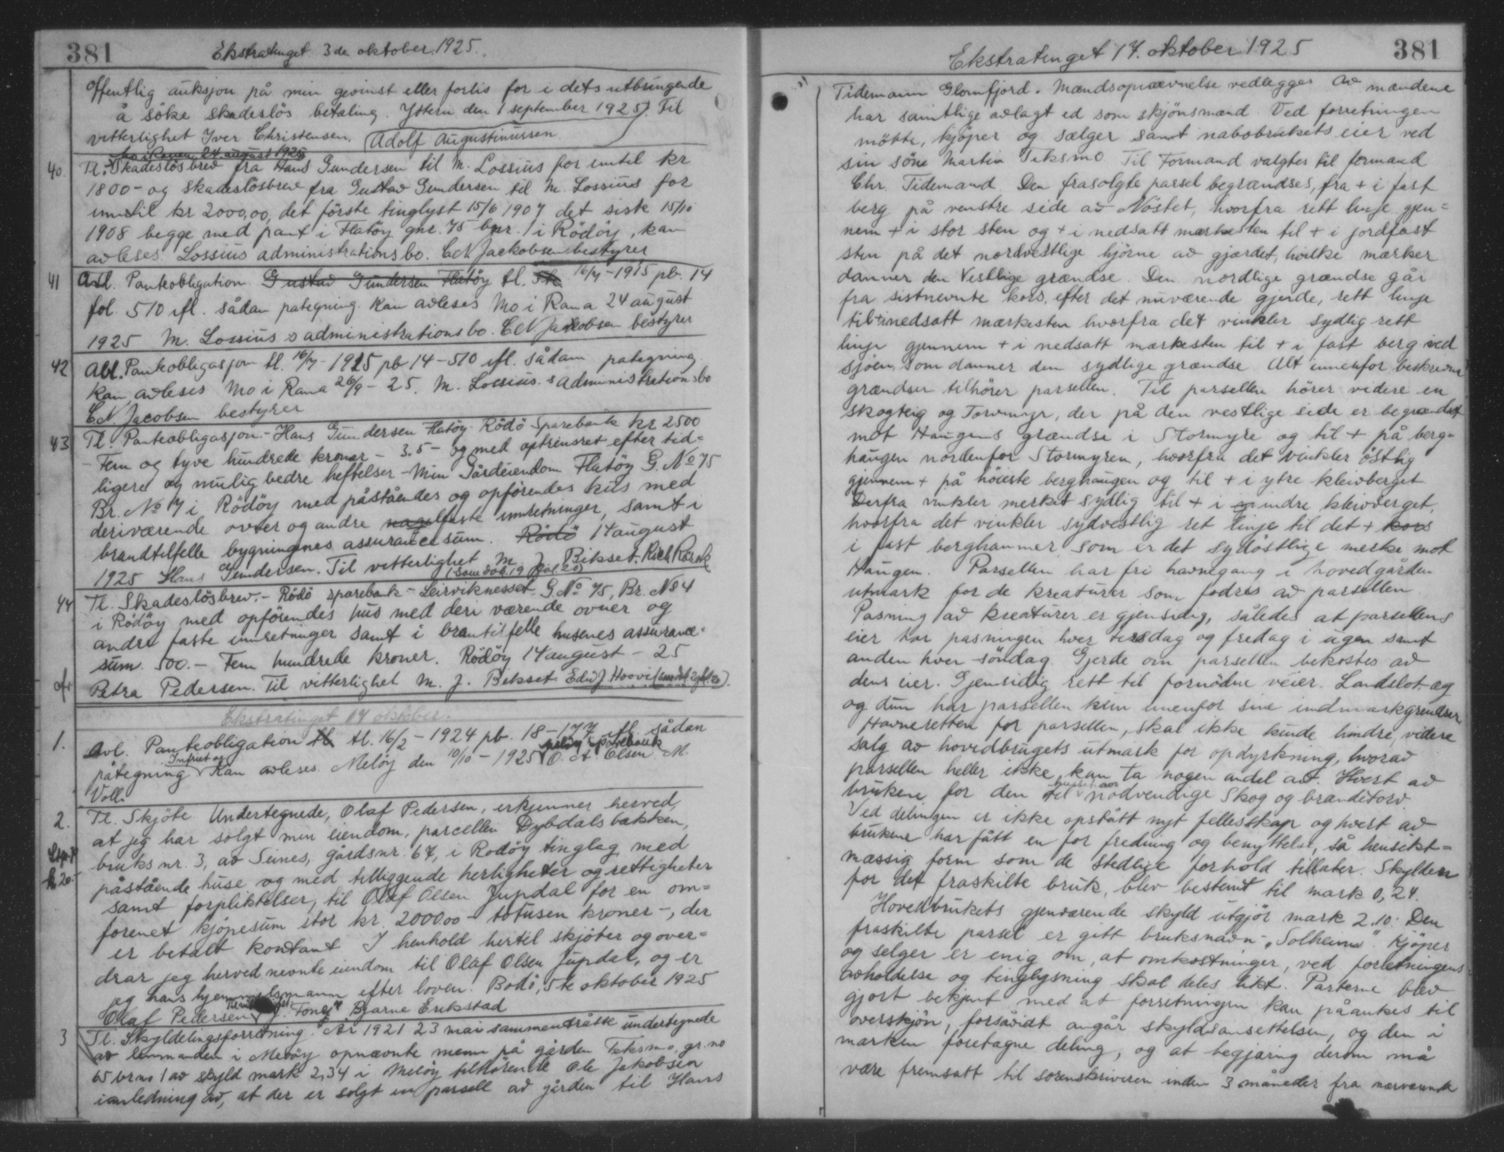 381
Ekstratinget 3de oktober 1925.
offentlig auksjon på min gevinst eller forlis for i dets utbringende
å søke skadesløs betaling. Ytteren den 1 september 1925. Til
vitterlighet Iver Christensen. Adolf Augustinussen
Mo i Ranen, 24 august 1925
40. Tl. Skadesløsbrev fra Hans Gundersen til M. Lossius for inntil kr
1800 - og skadesløsbrev fra Gustav Gundersen til M. Lossius for
inntil kr 2000,00, det første tinglyst 15/6 1907 det siste 15/10
1908 begge med pant i Flatøy gnr. 75 bnr. 1 i Rødøy, kan
avleses. Lossius administrationsbo. C N Jackobsen bestyrer
41 Avl. Pantobligation Gustav Gundersen Flatøy tl. 16/7-1915 pb. 14
fol. 510 ifl. sådan pategning kan avleses Mo i Rana 24 august
1925 M. Lossius s administrationsbo. C N Jackobsen bestyrer
42 Avl. Pantobligasjon tl. 16/7-1915 pb 14-510 ifl. sådan pategning
kan avleses Mo i Rana 26/9-25. M. Lossius s Administrationsbo
C N Jacobsen bestyrer
43 Tl. Pantobligasjon - Hans Gundersen Flatøy Rödö Sparebank kr 2500
- Fem og tyve hundrede kroner - 3.5 - og med optrinsret efter tid=
ligere og mulig bedre heftelser - Min Gårdeiendom Flatöy G. No 75
Br. No 7 i Rödöy med påståendes og opförendes hus med
deriværende ovner og andre nagelfaste innretninger, samt i
brandtilfelle bygningenes assurancesum. Rödö 14 august
1925 Hans Gundersen. Til vitterlighet M J Bekset. Rich Rasok
44 Tl. Skadeslösbrev. - Rödö sparebank - Leirviknesset G. No 75, Br. No 4
i Rödöy med opförendes hus med deri værende ovner og
andre faste innretninger samt i brantilfelle husenes assurance=
sum 500.- Fem hundrede kroner. Rödöy 14 august - 25
Petra Pedersen. Til vitterlighet M. J. Bekset Edv J Hoovi
Ekstratinget 17 oktober.
1. Avl. Pantobligation tl. 16/2-1924 pb. 18-177 ifl. sådan
påtegning kan avleses Meløy den 10/10-1925 Meløy Sparebank O. A Olsen M
Voll.
2. Tl. Skjöte Undertegnede, Olaf Pedersen, erkjenner herved,
at jeg har solgt min eiendom, parcellen Dybdalsbakken,
bruks nr. 3, av Sunes, gårdsnr. 67, i Rodöy tinglag med
påstående huse og med tilliggende herligheter og rettigheter
samt forpliktelser, til Olaf Olsen Jupdal for en om=
forenet kjøpesum stor kr. 2000.00 - totusen kroner -, der
er betalt kontant I henhold hertil skjöter og over=
drar jeg herved nevnte eiendom til Olaf Olsen Jupdal, og er
og hans hjemmelsmann efter loven. Bodö, 5te oktober 1925
Olaf Pedersen Bjarne Erikstad
3 Tl. Skyldelingsforretning. År 1921 23 mai sammentrådte undertegnede
av lensmanden i Meløy opnævnte menn på gården Teksmo, gr.no
65 br no 1 av skyld mark 2,34 i Meløy tilhörende Ole Jakobsen
i anledning av, at der er solgt en parsell av gården til Hans
Ekstratinget 17. oktober 1925
381
Tidemann Glomfjord. Mændsopnævnelse vedlegges Av mændene
har samtlige avlagt ed som skjönsmænd Ved forretningen
møtte, kjøper og sælger samt nabobrukets eier ved
sin söne Martin Teksmo Til Formand valgtes til formand
Chr. Tidemand. Den frasolgte parsel begrændses, fra + i fast
berg på venstre side av Nöstet, hvorfra rett linje gjen=
nem + i stor sten og + i nedsatt mærkesten til + i jordfast
sten på det nordvestlige hjörne av gjærdet, hvilke mærker
danner den Vestlige grændse. Den nordlige grændse går
fra sistnevnte kors, efter det nuværende gjerde, rett linje
til + i nedsatt mærkesten hvorfra det vinkler sydlig rett
linje gjennem + i nedsatt mærkesten til + i fast berg ved
sjöen, som danner den sydlige grændse Alt innenfor beskrevne
grændser tilhörer parsellen. Til parsellen hörer videre en
skogteig og Torvmyr, der på den vestlige side er begrændset
mot Haugens grændse i Stormyre og til + på berg=
haugen nordenfor Stormyren, hvorfra det vinkler östlig
gjennem + på höieste berghaugen og til + i ytre kleivberget
Derfra vinkler merket sydlig til + i indre kleivberget,
hvorfra det vinkler sydvestlig ret linje til det + kors
i fast berghammer som er det sydöstlige merke mot
Haugen. Parsellen har fri havnegang i hovedgården
utmark for de kreaturer som fodres av parsellen
Pasning av kreaturer er gjensidig, således at parsellens
eier har pasningen hver tirsdag og fredag i ugen samt
anden hver söndag. Gjerde om parsellen bekostes av
dens eier. Gjensidig rett til fornödne veier. Landslot æg
og dun har parsellen kun innenfor sine indmarkgrændser
Havneretten for parsellen, skal ikke kunde hindre videre
salg av hovedbrugets utmark for opdyrkning, hvorav
parsellen heller ikke kan ta nogen andel av. Hvert av
brukene for den til nödvendige Skog og brandtorv.
Ved delingen er ikke opstått nyt fellesskap og hvert av
brukene har fått en for fredning og benyttelse, så hensikt=
mæssig form som de stedlige forhold tillater. Skylden
for det fraskilte bruk, blev bestemt til mark 0,24.
Hovedbrukets gjenværende skyld utgjör mark 2.10. Den
fraskilte parsel er gitt bruksnavn - „Solheim". Kjöper
og selger er enig om, at omkostninger, ved forretningens
avholdelse og tinglysning skal deles likt. Parterne blev
gjort bekjent med at forretningen kan påankes til
overskjön, forsåvidt angår skyldansettelsen, og den i
marken foretagne deling, og at begjæring derom må
være fremsatt til sorenskriveren inden 3 måneder fra nærværende